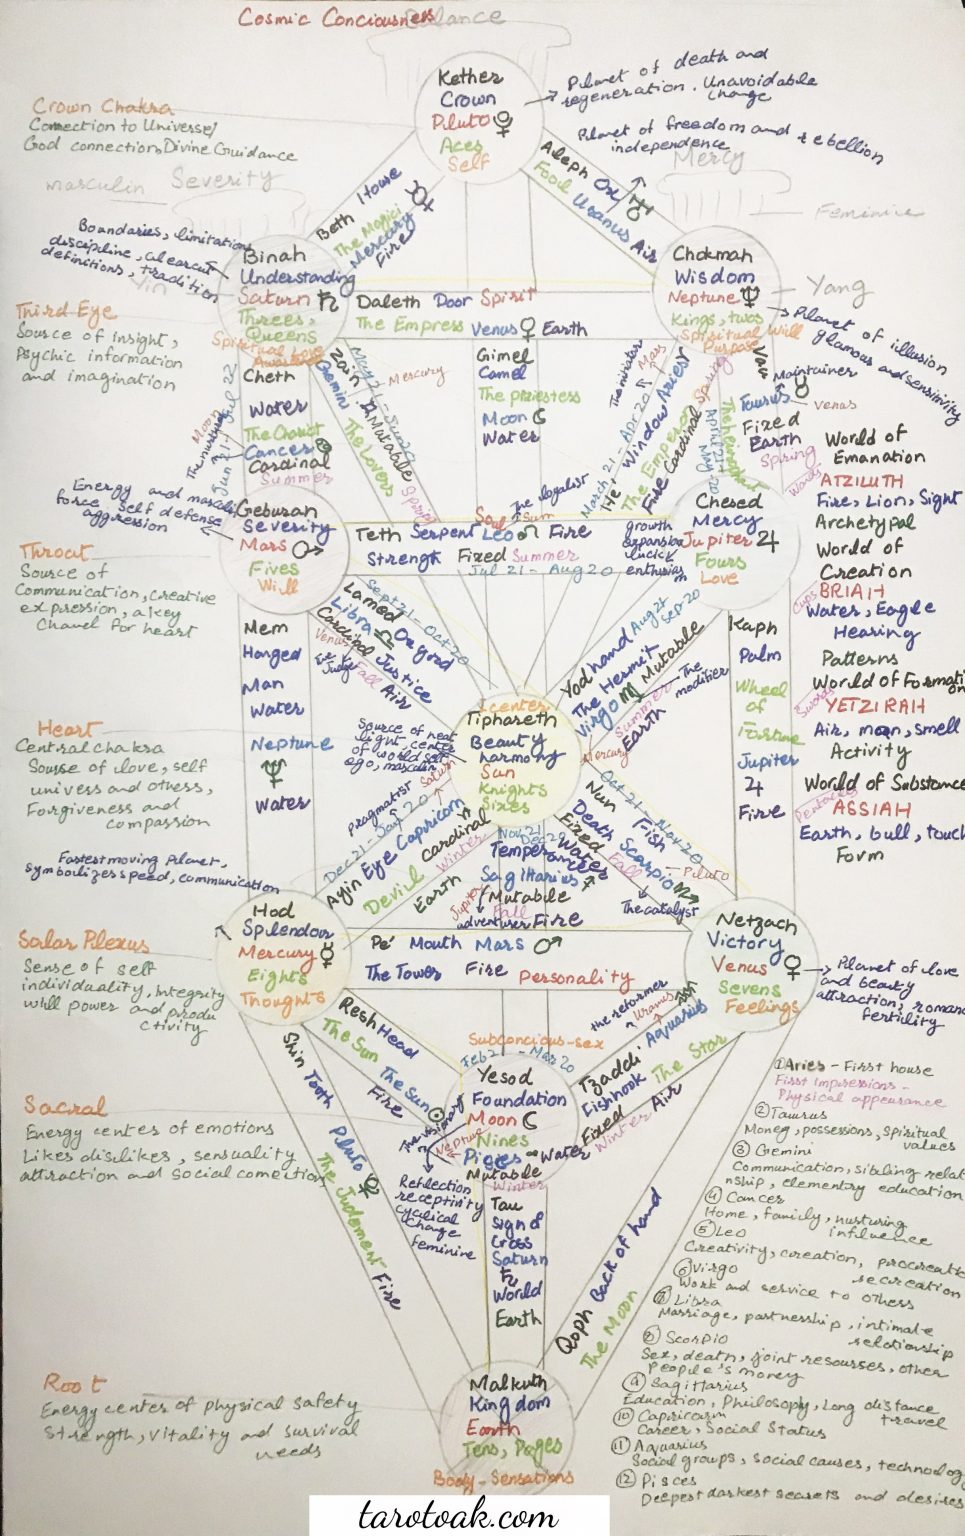 Cosmic Conciousness
Balance
Kether
Crown
Pluto ♀
Aces
Self
→ Planet of death and
regeneration. Unavoidable
change
Planet of freedom and rebellion
independence
Crown Chakra
Connection to Universe/
God connection, Divine Guidance
masculin Severity
Mercy
Feminine
Beth House
The Magici
Mercury
Fire
Aleph Ox
Fool Uranus Air
Boundaries, limitation
discipline, clearcut
definitions, tradition
Yin
Binah
Understanding
Saturn ♄
Threes,
Queens
Chokmah
Wisdom
Neptune ♆
Kings, twos
Spiritual Will
Purpose
Yang
Planet of illusion
glamous and sensitivity
Daleth Door Spirit
The Empress Venus ♀ Earth
Third Eye
Source of insight,
Psychic information
and imagination
Cheth
Water
The Chariot
Cancer
Cardinal
Summer
Moon
Zain
Gemini
The Lovers
Mutable
Mercury
Gimel
Camel
The priestess
Moon ☾
Water
March 21 - Apr 20
Mars
He' Window Aries
The Emperor
Fire Cardinal
Spring
Vau
Maintainer
Taurus
venus
Fixed
Earth
Spring
April 21 -
May 20
World of
Emanation
Wands
ATZILUTH
Fire, Lion, Sight
Archetypal
World of
Creation
Cups
BRIAH
Water, Eagle
Hearing
Patterns
World of Formation
Swords
YETZIRAH
Air, moon, smell
Activity
World of Substance
ASSIAH
Earth, bull, touch
Form
Energy and
force Self defense
aggression
Geburan
Severity
Mars ♂
Fives
Will
Soul
Sun
Teth Serpent Leo ♌ Fire
Strength Fixed Summer
Jul 21 - Aug 20
growth
expansion
luck
enthusiasm
Chesed
Mercy
Jupiter ♃
Fours
Love
Throat
Source of
Communication, creative
expression, a key
Chanel for heart
Mem
Hanged
Man
Water
Neptune
♆
Water
Sept 21 - Oct 20
Lamed Ox goad
Libra ♎ Justice
Cardinal Air
Venus
Fall
Aug 21
Sep-20
Yod hand
The Hermit Mutable
Virgo ♍
The
modifier
Summer
Earth
Mercury
Kaph
Palm
Wheel
of
Fortune
Jupiter
♃
Fire
Heart
Central chakra
Source of love, self
univers and others,
Forgiveness and
compassion
Source of heat
light, center
of world self
ego, masculin
center
Tiphareth
Beauty
harmony
Sun
Knights
Sixes
pragmatist
Saturn
Ayin Eye Capricorn
Devil Cardinal
Earth Winter
Nov 21
Temperance
Sagittarius
Mutable
Jupiter
Fall
adventurer Fire
Oct 21 - Nov 20
Nun Fish
Death Scorpio ♏
Fixed
Water
Fall
Pluto
The catalyst
Fastest moving Planet,
symbolizes speed, communication
Hod
Splendour
Mercury ☿
Eights
Thoughts
Pe' Mouth Mars ♂
The Tower Fire Personality
Netzach
Victory
Venus ♀
Sevens
Feelings
→ Planet of love
and beauty
attraction, romance
fertility
Solar Plexus
Sense of self
individuality, Integrity
will power and produ
ctivity
Resh Head
The Sun The Sun
Fire
Shin Tooth
Pluto
The Judement Fire
Subconcious-sex
Feb 21 - Mar 20
Yesod
Foundation
Moon ☾
Nines
Water
Mutable
Winter
The visionary
Neptune
Reflection
receptivity
cyclical
change
feminine
the reformer
Uranus
Tzaddi Aquarius
Fishhook The Star
Fixed Air
Winter
Sacral
Energy center of emotions
Likes dislikes, sensuality
attraction and social conection
Tau
Sign of
Cross
Saturn
♄
World
Earth
Qoph Back of hand
The Moon
① Aries - First house
First impressions -
Physical appearance
② Taurus
Money, possessions, Spiritual
values
③ Gemini
Communication, sibling relat
nship, elementry education
④ Cancer
Home, family, nurturing
influence
⑤ Leo
Creativity, creation, procreati
recreation
⑥ Virgo
Work and service to others
⑦ Libra
Marriage, partnership, intimate
relationship
⑧ Scorpio
Sex, death, joint resourses, other
people's money
⑨ Sagittarius
Education, Philosophy, Long distance
travel
⑩ Capricorn
Career, Social Status
⑪ Aquarius
Social groups, social causes, technology
⑫ Pisces
Deepest darkest secrets and desires
Root
Energy center of physical Safety
Strength, vitality and survival
needs
Malkuth
Kingdom
Earth
Tens, Pages
Body - Sensations
tarotoak.com